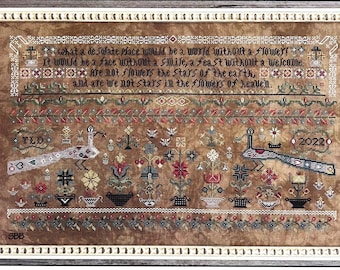 What a desolate place would be a world without a flower!
It would be a face without a smile, a feast without a welcome.
Are not flowers the stars of the earth,
and are we not stars in the flowers of heaven.
TLD
2022
SBB